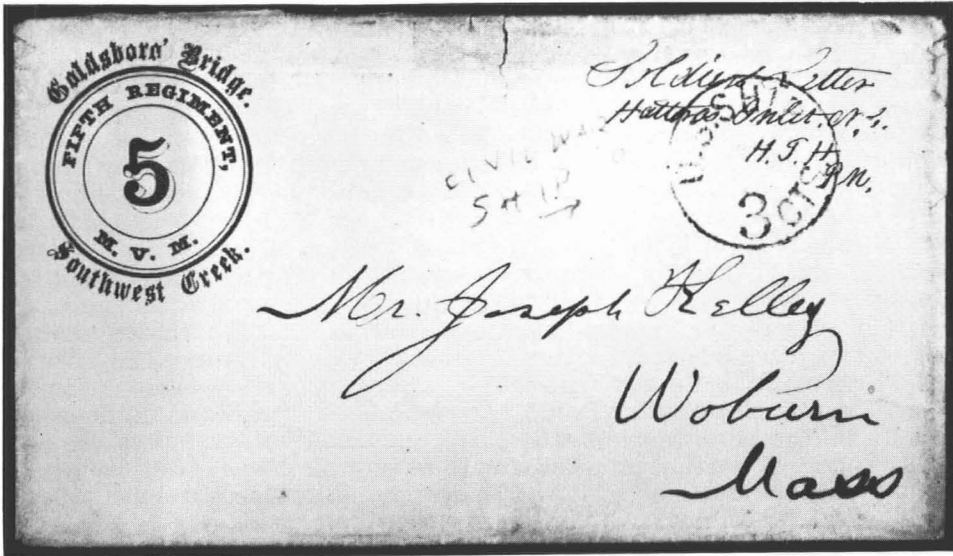 Goldsboro' Bridge.
FIFTH REGIMENT,
5
M. V. M.
Southwest Creek.
Soldiers Letter
Hatteras Inlet. N. C.
H. J. H.
P.M.
SHIP
3 CTS
CIVIL WAR
SHIP
Mr. Joseph Kelley
Woburn
Mass